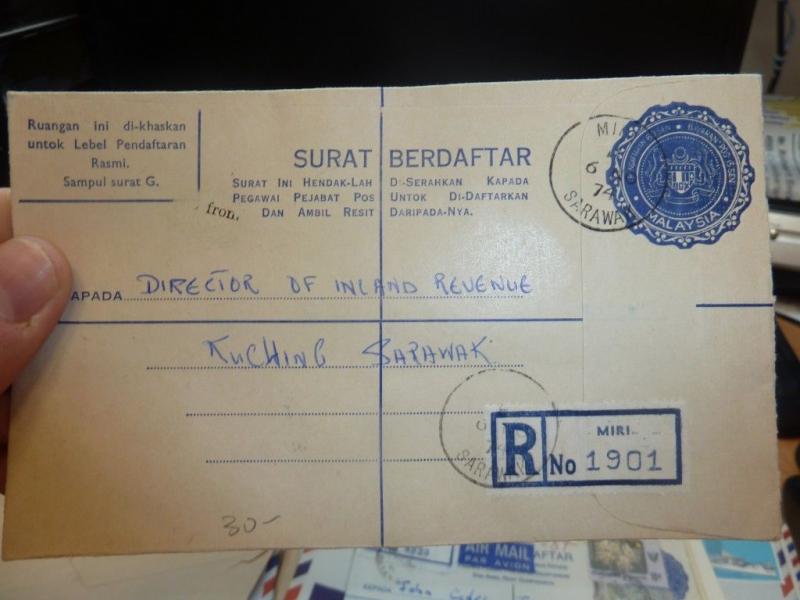 Ruangan ini di-khaskan
untok Lebel Pendaftaran
Rasmi.
Sampul surat G.
SURAT BERDAFTAR
SURAT INI HENDAK-LAH DI-SERAHKAN KAPADA
PEGAWAI PEJABAT POS UNTOK DI-DAFTARKAN
DAN AMBIL RESIT DARIPADA-NYA.
fron.
MI
6
74
SARAWA
MALAYSIA
APADA DIRECTOR OF INLAND REVENUE
KUCHING SARAWAK
6
74
SARAW
R
MIRI
No 1901
30-
AIR MAIL
PAR AVION
AFTAR
John